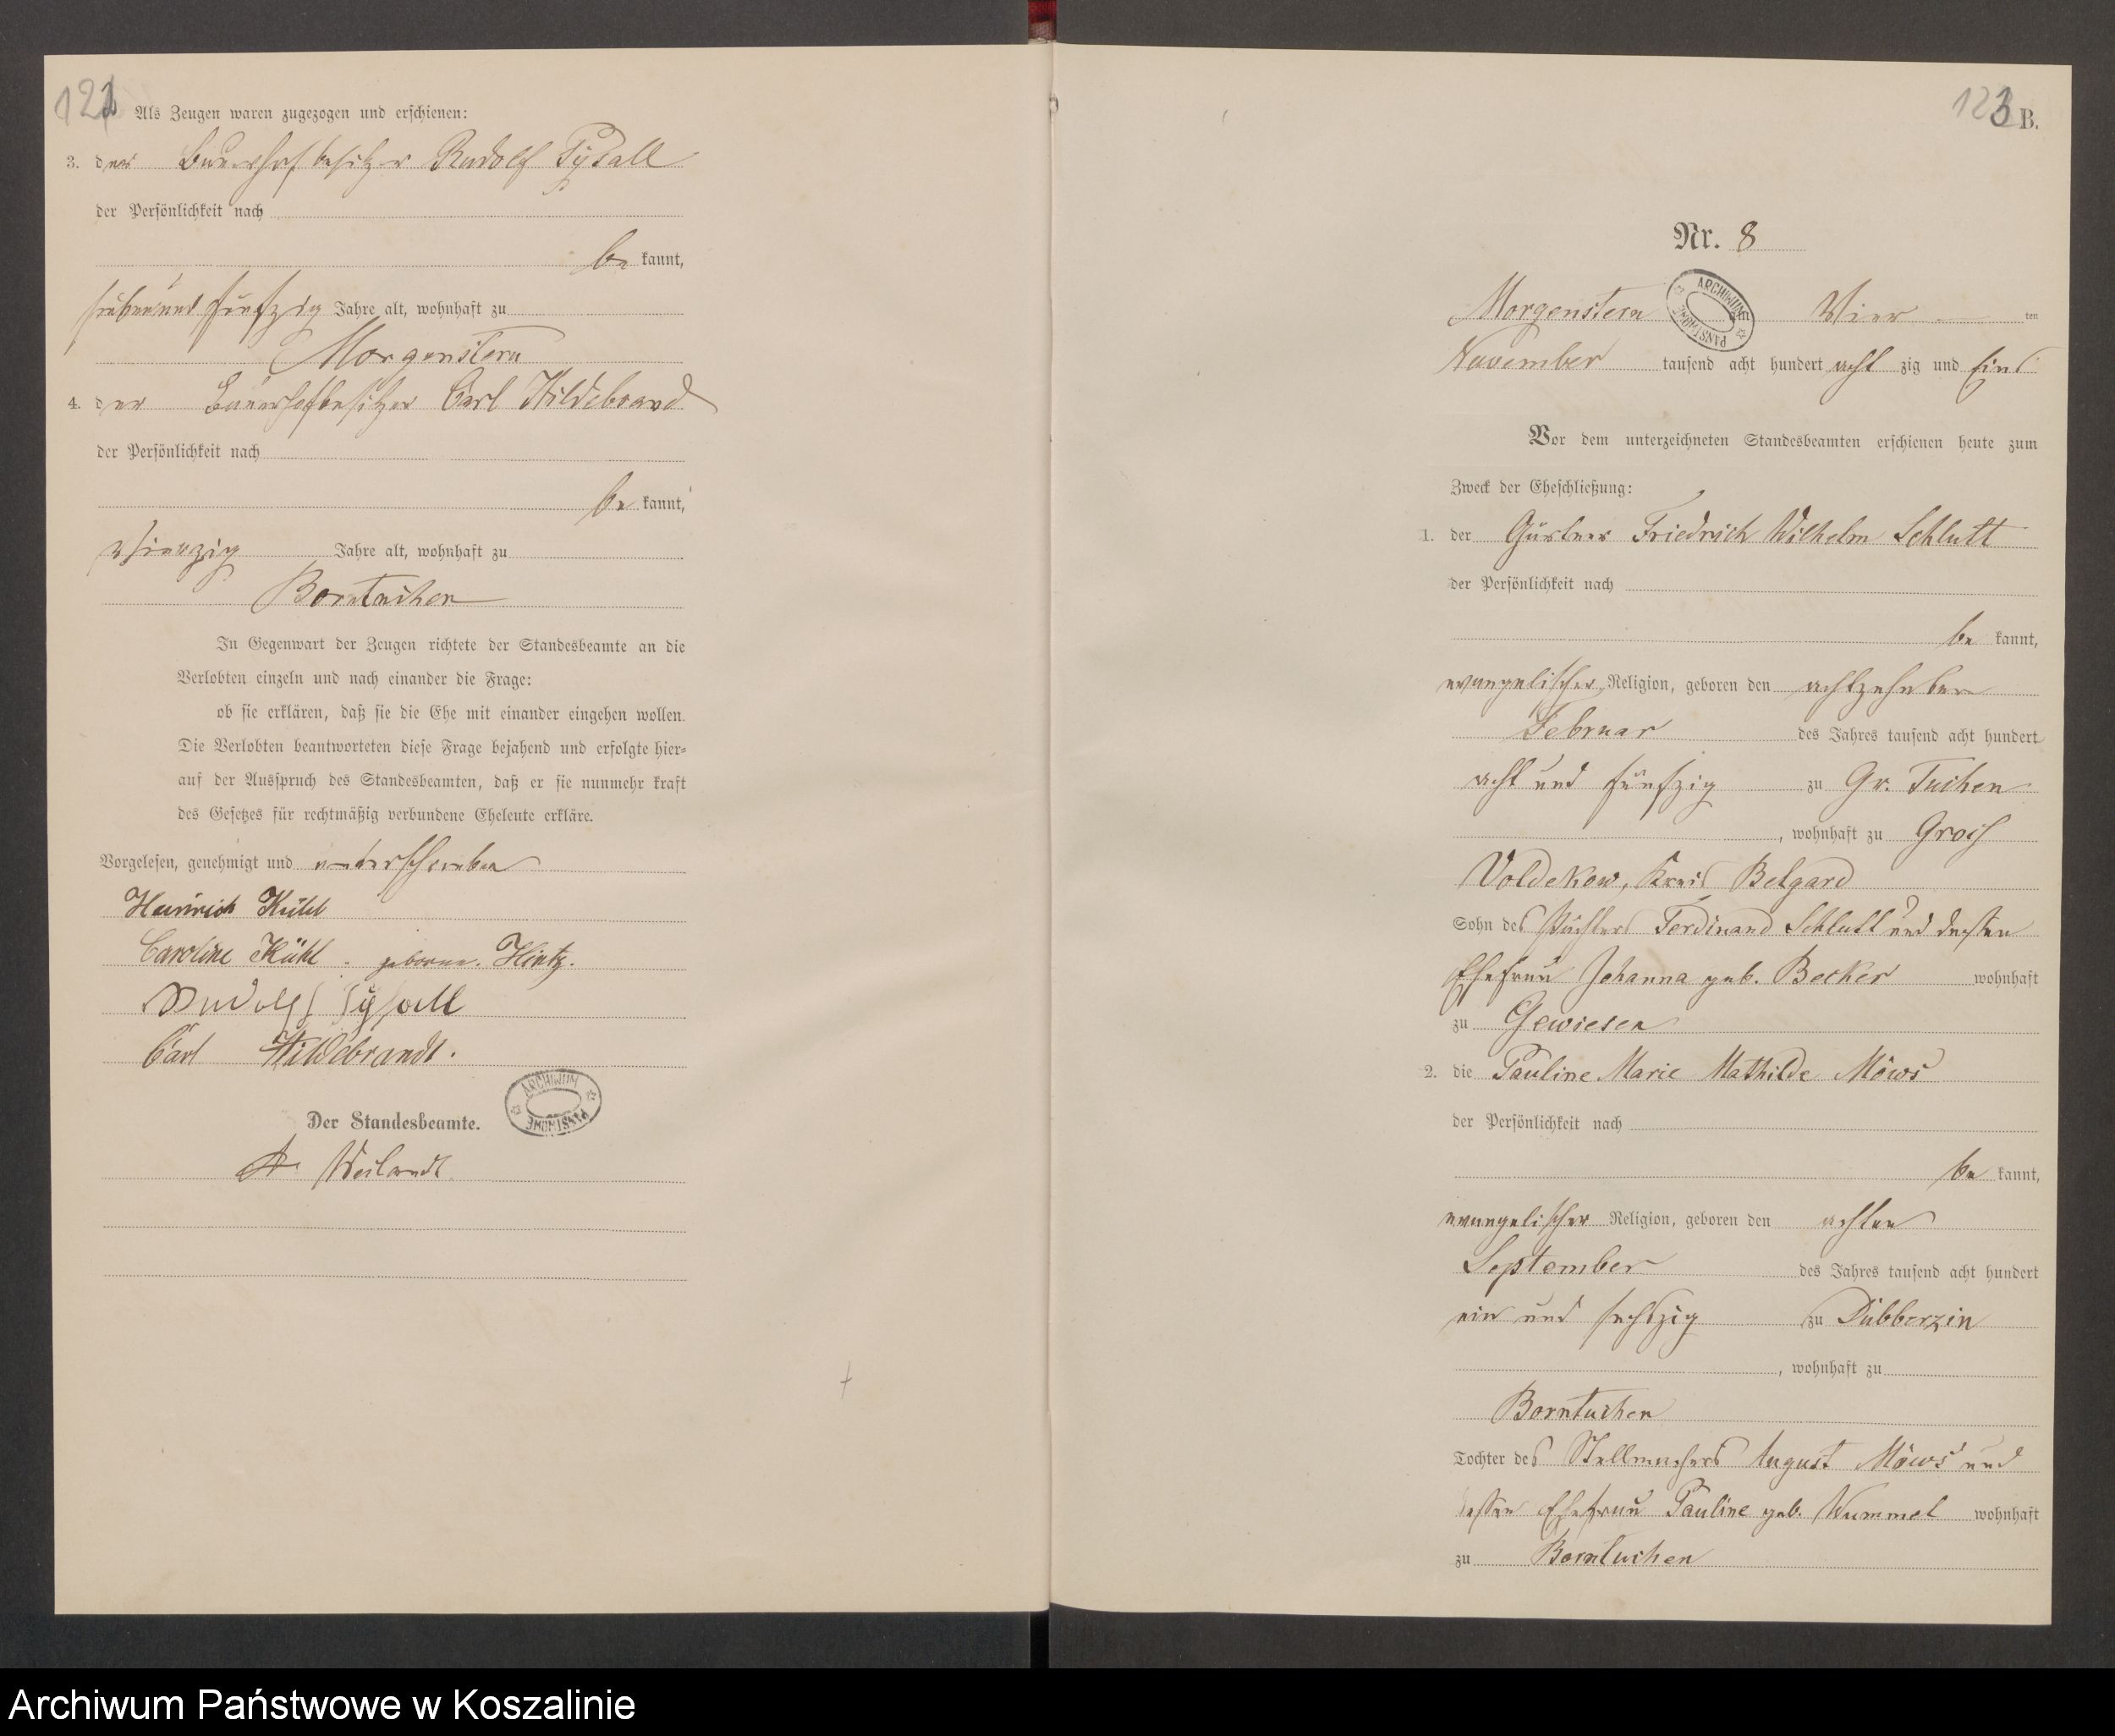 122
Als Zeugen waren zugezogen und erschienen:
3. der Bauerhofbesitzer Rudolf
der Persönlichkeit nach
be kannt,
siebenund fünfzig Jahre alt, wohnhaft zu
Morgenstern
4. der Bauerhofbesitzer Carl Hildebrand
der Persönlichkeit nach
be kannt,
vierzig Jahre alt, wohnhaft zu
Borntuchen
In Gegenwart der Zeugen richtete der Standesbeamte an die
Verlobten einzeln und nach einander die Frage:
ob sie erklären, daß sie die Ehe mit einander eingehen wollen.
Die Verlobten beantworteten diese Frage bejahend und erfolgte hier-
auf der Ausspruch des Standesbeamten, daß er sie nunmehr kraft
des Gesetzes für rechtmäßig verbundene Eheleute erkläre.
Vorgelesen, genehmigt und unterschrieben
Heinrich Kühl
Caroline Kühl. geborene. Hintz.
Rudolf
Carl Hildebrandt.
ARCHIWUM PAŃSTWOWE
Der Standesbeamte.
Weilandt.
123
B.
Nr. 8
Morgenstern ARCHIWUM PAŃSTWOWE Vier ten
November tausend acht hundert acht zig und Eins
Vor dem unterzeichneten Standesbeamten erschienen heute zum
Zweck der Eheschließung:
1. der Gärtner Friedrich Wilhelm Schlutt
der Persönlichkeit nach
be kannt,
evangelischer Religion, geboren den achtzehnten
Februar des Jahres tausend acht hundert
acht und fünfzig zu Gr. Tuchen
, wohnhaft zu Groß
Voldekow, Kreis Belgard
Sohn des Pächters Ferdinand Schlutt und dessen
Ehefrau Johanna geb. Becker wohnhaft
zu Gewiesen
2. die Pauline Marie Mathilde Möws
der Persönlichkeit nach
be kannt,
evangelischer Religion, geboren den achten
September des Jahres tausend acht hundert
ein und sechszig zu Dübberzin
, wohnhaft zu
Borntuchen
Tochter des Stellmachers August Möws und
dessen Ehefrau Pauline geb. Wummel wohnhaft
zu Borntuchen
Archiwum Państwowe w Koszalinie